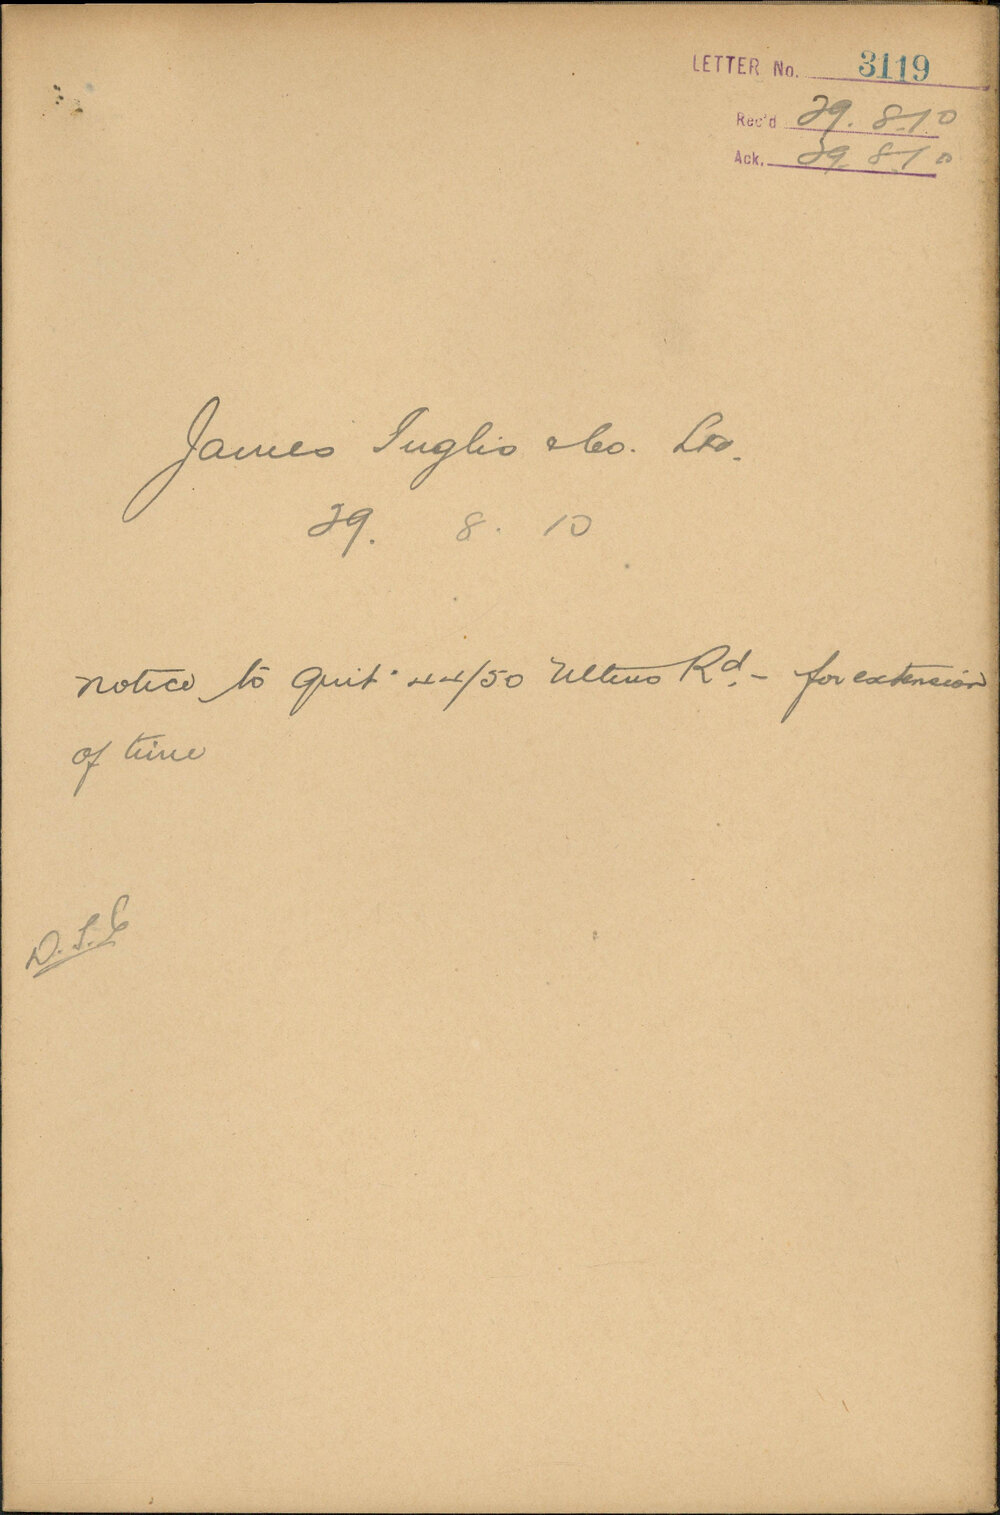 LETTER No. 3119
Rec'd 29. 8.10
Ack. 29. 8.10
James Inglis & Co. Ltd.
29. 8. 10
Notice to Quit 44/50 Ultimo Rd. - for extension
of time
D.S.C